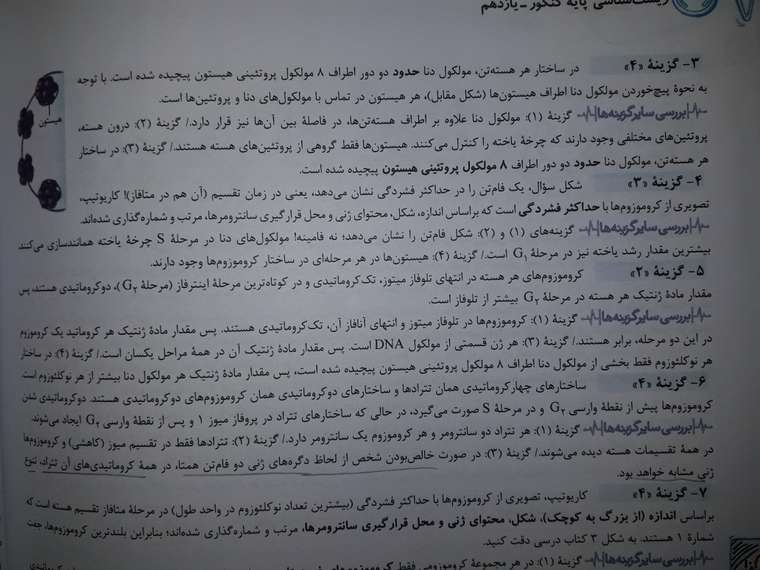 زیست‌شناسی پایه کنکور - یازدهم
۳- گزینهٔ «۴» در ساختار هر هسته‌تن، مولکول دنا حدود دو دور اطراف ۸ مولکول پروتئینی هیستون پیچیده شده است. با توجه
به نحوهٔ پیچ‌خوردن مولکول دنا اطراف هیستون‌ها (شکل مقابل)، هر هیستون در تماس با مولکول‌های دنا و پروتئین‌ها است.
هیستون
بررسی سایر گزینه‌ها گزینهٔ (۱): مولکول دنا علاوه بر اطراف هسته‌تن‌ها، در فاصلهٔ بین آن‌ها نیز قرار دارد./ گزینهٔ (۲): درون هسته،
پروتئین‌های مختلفی وجود دارند که چرخهٔ یاخته را کنترل می‌کنند. هیستون‌ها فقط گروهی از پروتئین‌های هسته هستند./ گزینهٔ (۳): در ساختار
هر هسته‌تن، مولکول دنا حدود دو دور اطراف ۸ مولکول پروتئینی هیستون پیچیده شده است.
۴- گزینهٔ «۳» شکل سؤال، یک فام‌تن را در حداکثر فشردگی نشان می‌دهد، یعنی در زمان تقسیم (آن هم در متافاز)! کاریوتیپ،
تصویری از کروموزوم‌ها با حداکثر فشردگی است که براساس اندازه، شکل، محتوای ژنی و محل قرارگیری سانترومرها، مرتب و شماره‌گذاری شده‌اند.
بررسی سایر گزینه‌ها گزینه‌های (۱) و (۲): شکل فام‌تن را نشان می‌دهد؛ نه فامینه! مولکول‌های دنا در مرحلهٔ S چرخهٔ یاخته همانندسازی می‌کنند
بیشترین مقدار رشد یاخته نیز در مرحلهٔ G۱ است./ گزینهٔ (۴): هیستون‌ها در هر مرحله‌ای در ساختار کروموزوم‌ها وجود دارند.
۵- گزینهٔ «۲» کروموزوم‌های هر هسته در انتهای تلوفاز میتوز، تک‌کروماتیدی و در کوتاه‌ترین مرحلهٔ اینترفاز (مرحلهٔ G۲)، دوکروماتیدی هستند. پس
مقدار مادهٔ ژنتیک هر هسته در مرحلهٔ G۲ بیشتر از تلوفاز است.
بررسی سایر گزینه‌ها گزینهٔ (۱): کروموزوم‌ها در تلوفاز میتوز و انتهای آنافاز آن، تک‌کروماتیدی هستند. پس مقدار مادهٔ ژنتیک هر کروماتید یک کروموزوم
در این دو مرحله، برابر هستند./ گزینهٔ (۳): هر ژن قسمتی از مولکول DNA است. پس مقدار مادهٔ ژنتیک آن در همهٔ مراحل یکسان است./ گزینهٔ (۴): در ساختار
هر نوکلئوزوم فقط بخشی از مولکول دنا اطراف ۸ مولکول پروتئینی هیستون پیچیده شده است، پس مقدار مادهٔ ژنتیک هر مولکول دنا بیشتر از هر نوکلئوزوم است
۶- گزینهٔ «۴» ساختارهای چهارکروماتیدی همان تترادها و ساختارهای دوکروماتیدی همان کروموزوم‌های دوکروماتیدی هستند. دوکروماتیدی شدن
کروموزوم‌ها پیش از نقطهٔ وارسی G۲ و در مرحلهٔ S صورت می‌گیرد، در حالی که ساختارهای تتراد در پروفاز میوز ۱ و پس از نقطهٔ وارسی G۲ ایجاد می‌شوند.
بررسی سایر گزینه‌ها گزینهٔ (۱): هر تتراد دو سانترومر و هر کروموزوم یک سانترومر دارد./ گزینهٔ (۲): تترادها فقط در تقسیم میوز (کاهشی) و کروموزوم‌ها
در همهٔ تقسیمات هسته دیده می‌شوند./ گزینهٔ (۳): در صورت خالص‌بودن شخص از لحاظ دگره‌های ژنی دو فام‌تن همتا، در همهٔ کروماتیدی‌های آن تتراد، تنوع
ژنی مشابه خواهد بود.
۷- گزینهٔ «۴» کاریوتیپ، تصویری از کروموزوم‌ها با حداکثر فشردگی (بیشترین تعداد نوکلئوزوم در واحد طول) در مرحلهٔ متافاز تقسیم هسته است که
براساس اندازه (از بزرگ به کوچک)، شکل، محتوای ژنی و محل قرارگیری سانترومرها، مرتب و شماره‌گذاری شده‌اند؛ بنابراین بلندترین کروموزوم‌ها، جفت
شمارهٔ ۱ هستند. به شکل ۳ کتاب درسی دقت کنید.
بررسی سایر گزینه‌ها گزینهٔ (۱): در هر مجموعهٔ کروموزومی فقط